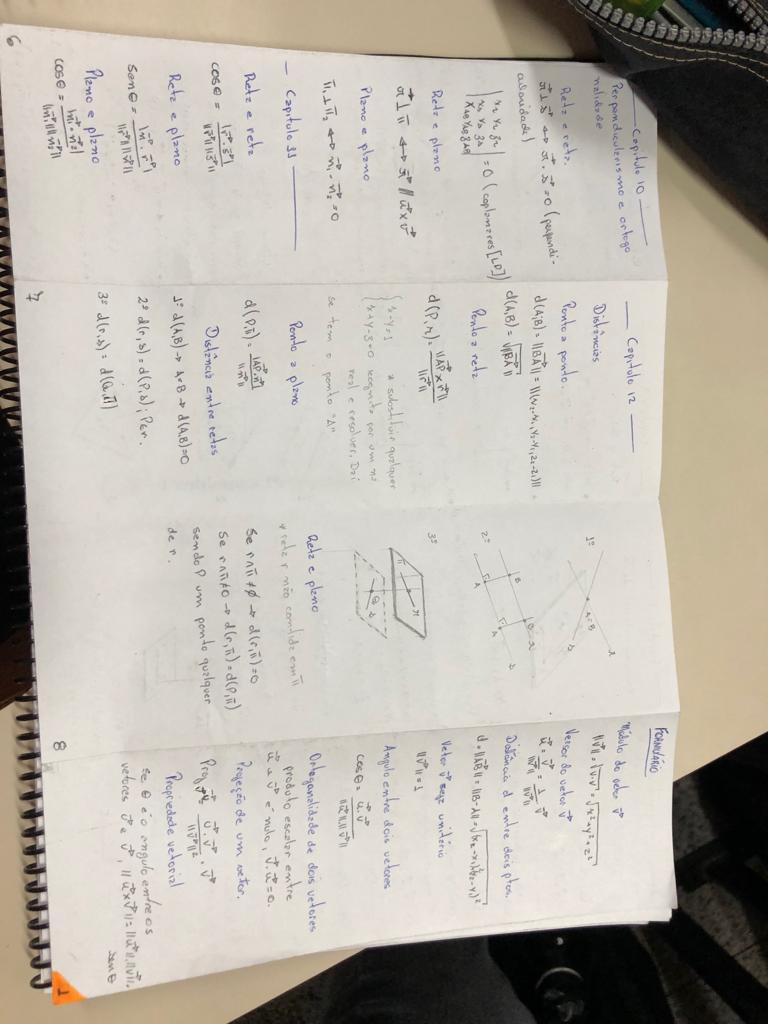 Capitulo 10
Perpendicularismo e ortogo
nalidade
Reta e reta.
r⃗ ⊥ s⃗ ↔ r⃗ . s⃗ = 0 (perpendi-
cularidade)
= 0 (coplanares [LD])
Reta e plano
r⃗ ⊥ π ↔ r⃗ // u⃗ x v⃗
Plano e plano
π₁ ⊥ π₂ ↔ n⃗₁ . n⃗₂ = 0
Capitulo 11
Reta e reta
cosθ = |r⃗ . s⃗| / ||r⃗|| ||s⃗||
Reta e plano
senθ = |n⃗ . r⃗| / ||r⃗|| ||n⃗||
Plano e plano
cosθ = |n⃗₁ . n⃗₂| / ||n⃗₁|| ||n⃗₂||
6
Capitulo 12
Distâncias
Ponto a ponto.
d(A,B) = ||BA⃗|| = ||(x₂-x₁, y₂-y₁, z₂-z₁)||
d(A,B) = √||BA⃗||
Ponto a reta
d(P,r) = ||AP⃗ x r⃗|| / ||r⃗||
{ x-y=1
a substituir qualquer
x+y-z=0
incógnita por um nº
real e resolver. Daí
se tem o ponto "A"
Ponto a plano
d(P,π) = |AP⃗ . n⃗| / ||n⃗||
Distância entre retas
1º d(A,B) → A=B → d(A,B)=0
2º d(r,s) = d(P,s); P∈r.
3º d(r,s) = d(Q,π)
7
1º
A=B
r
s
2º
B
B
r
A
A
s
3º
r
π
Q
s
Reta e plano
* reta r não contida em π
Se r∩π≠∅ → d(r,π)=0
Se r∩π≠0 → d(r,π)=d(P,π)
sendo P um ponto qualquer
de r.
8
FORMULÁRIO
Módulo do vetor v⃗
||v⃗|| = √v⃗.v⃗ = √x²+y²+z²
Versor do vetor v⃗
u⃗ = v⃗ / ||v⃗|| = 1 / ||v⃗|| . v⃗
Distância d entre dois ptos.
d = ||AB⃗|| = ||B-A|| = √(x₂-x₁)²+(y₂-y₁)²
Vetor v⃗ seja unitário
||v⃗|| = 1
Angulo entre dois vetores
cosθ = u⃗.v⃗ / ||u⃗||.||v⃗||
Ortogonalidade de dois vetores
produto escalar entre
u⃗ e v⃗ é nulo, v⃗.u⃗ = 0.
Projeção de um vetor.
Proj v⃗ u⃗ = u⃗.v⃗ / ||v⃗||² . v⃗
Propriedade vetorial
se θ é o angulo entre os
vetores u⃗ e v⃗, ||u⃗xv⃗|| = ||u⃗||.||v⃗||.
senθ
1